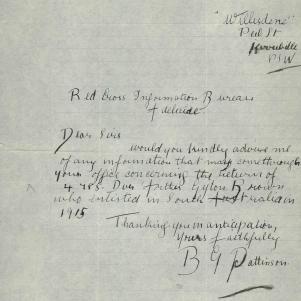 "Willsdene"
Peel St
NSW
Red Cross Information Bureau
Adelaide
Dear Sirs
would you kindly advise me
of any information that may come through
your office concerning the return of
4785 Dvr Gyton Brown
who enlisted in South Australia in
1915
Thanking you in anticipation,
Yours faithfully
B G Pattinson